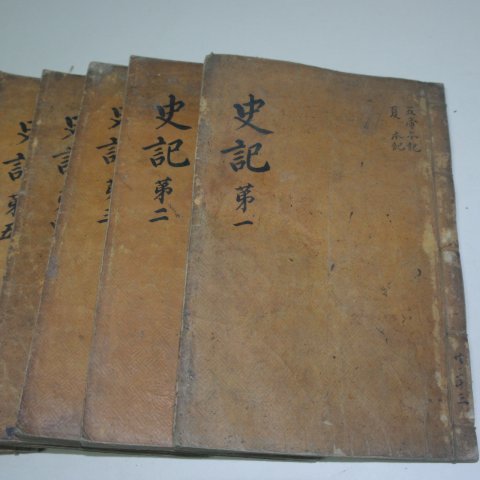 五帝本紀
夏本紀
史記 第一
史記 第二
史記 第三
史記
史記 第五